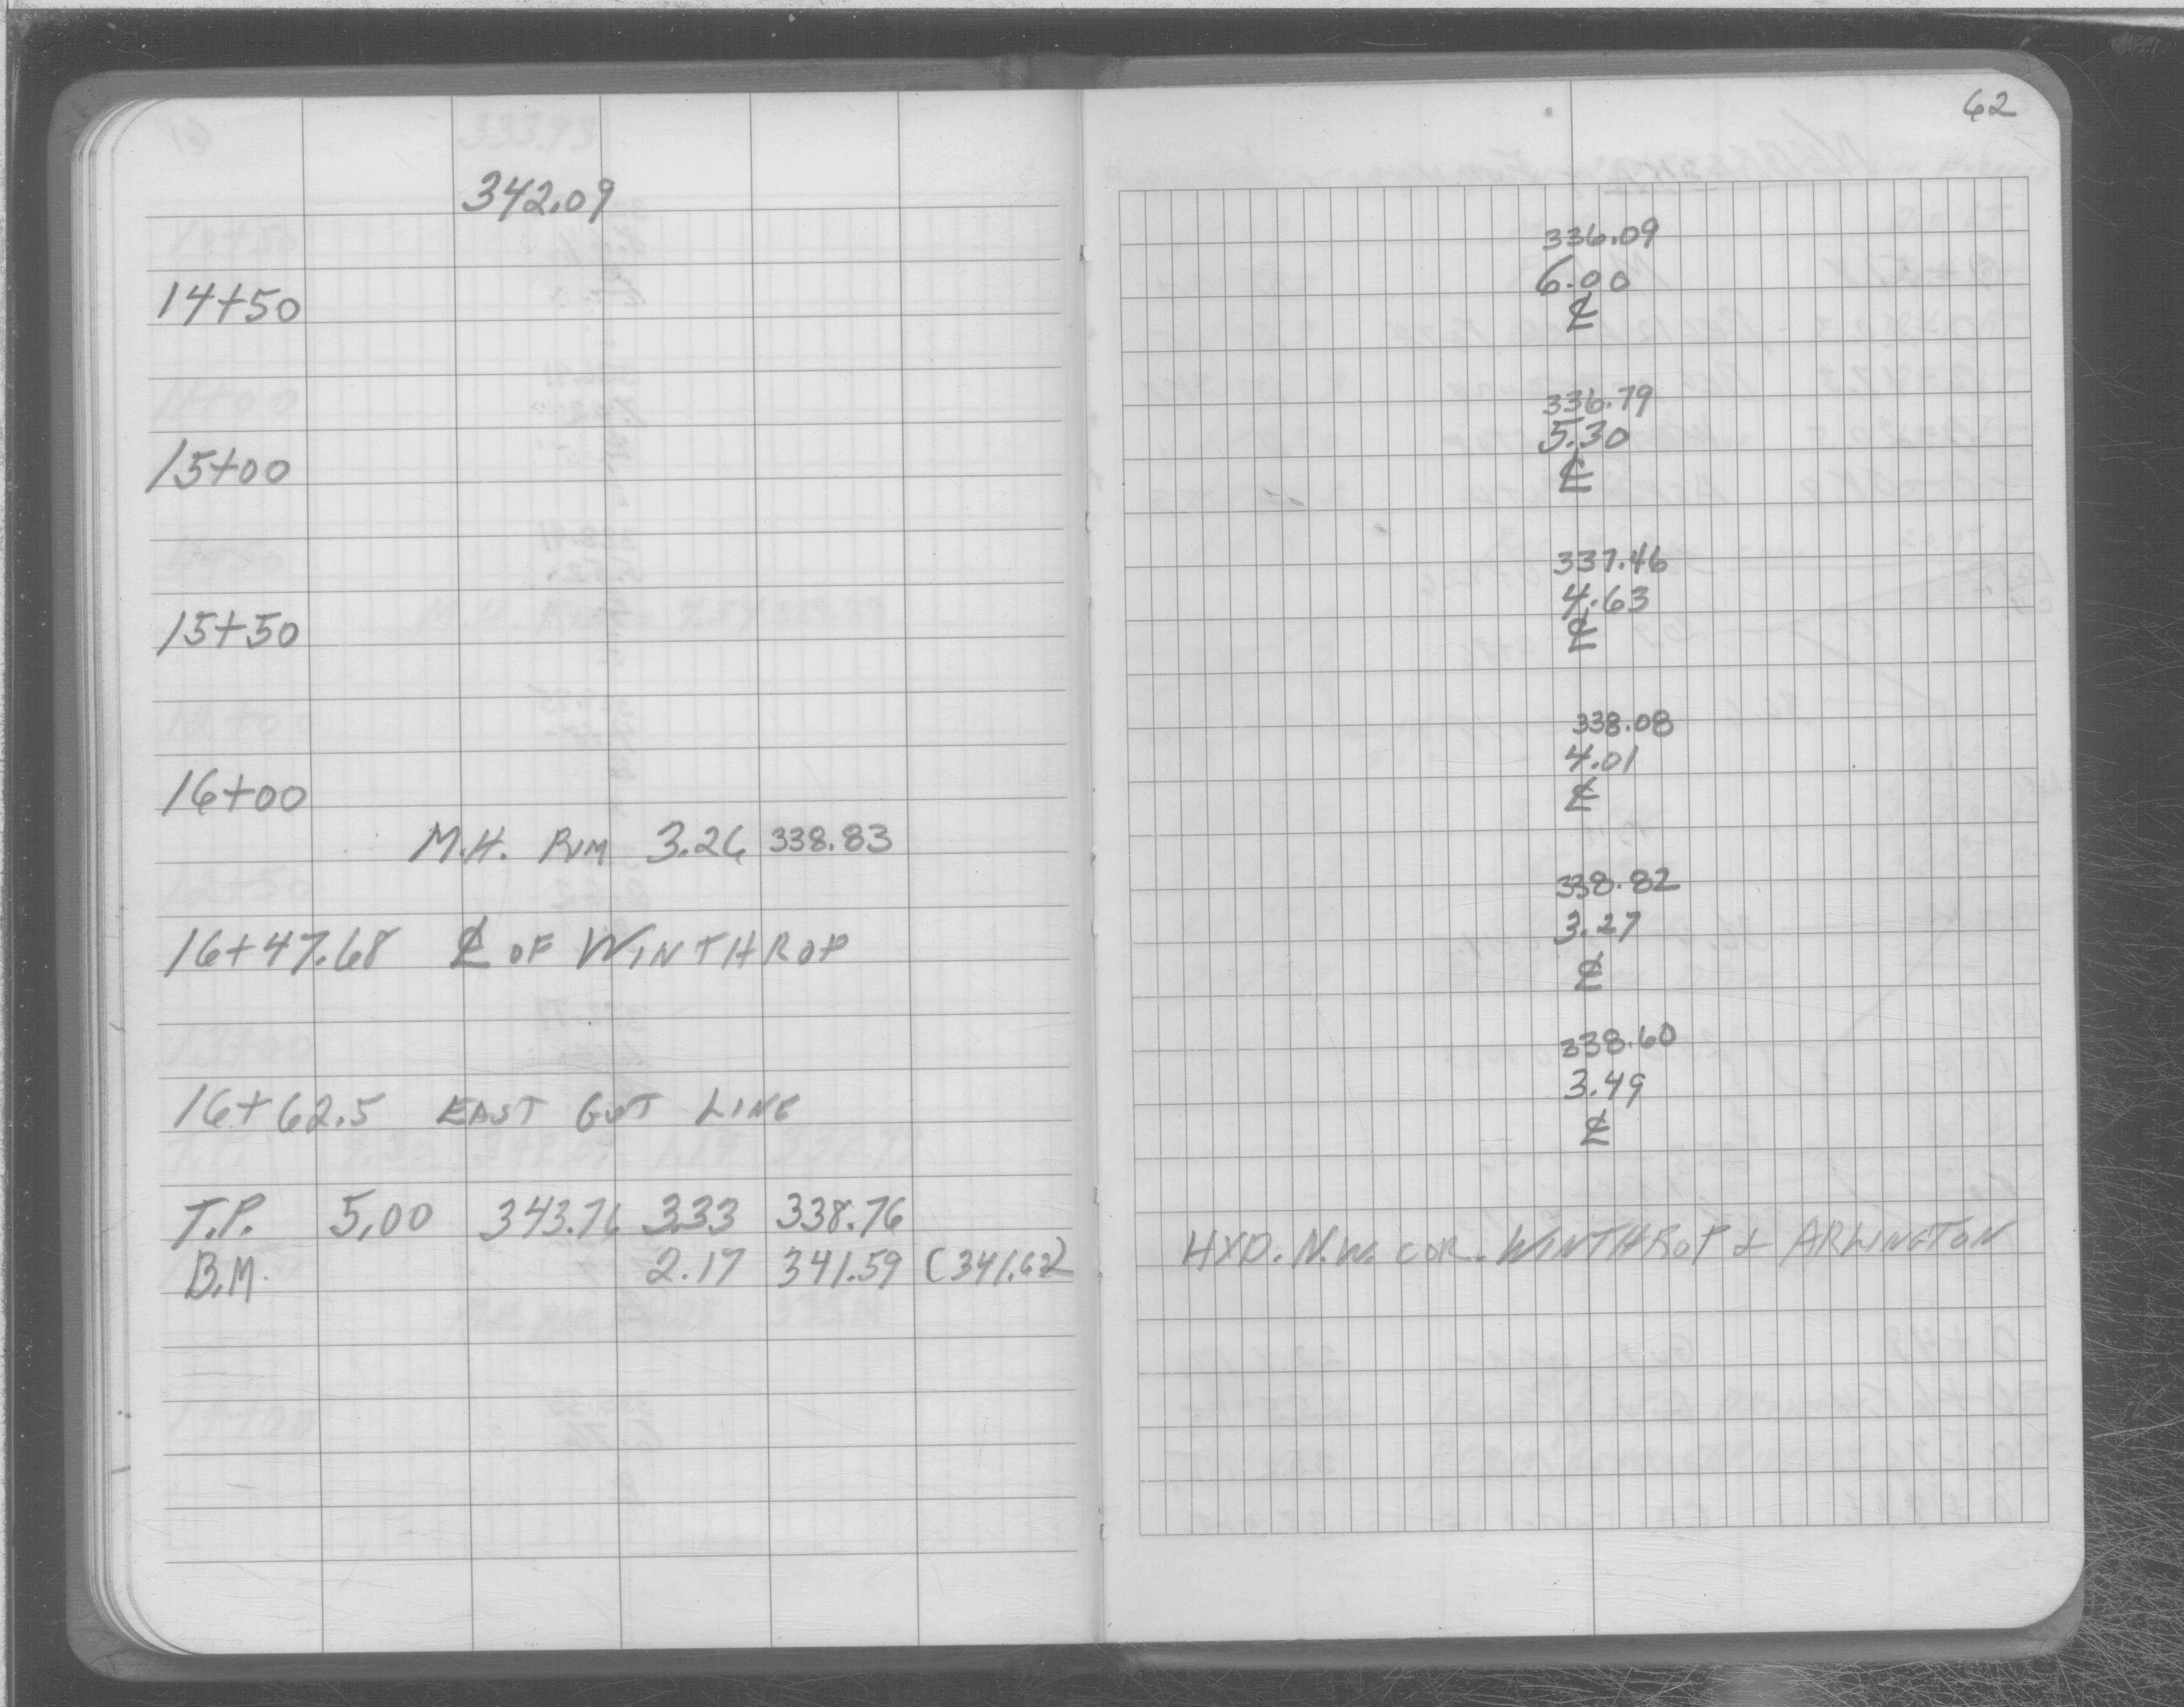 342.09
14+50
15+00
15+50
16+00
M.H. RIM 3.26 338.83
16+47.68 ℄ OF WINTHROP
16+62.5 EAST GUT LINE
T.P. 5.00 343.76 3.33 338.76
B.M. 2.17 341.59 (341.62)
62
336.09
6.00
℄
336.79
5.30
℄
337.46
4.63
℄
338.08
4.01
℄
338.82
3.27
℄
338.60
3.49
℄
HYD. N.W. COR. WINTHROP & ARLINGTON